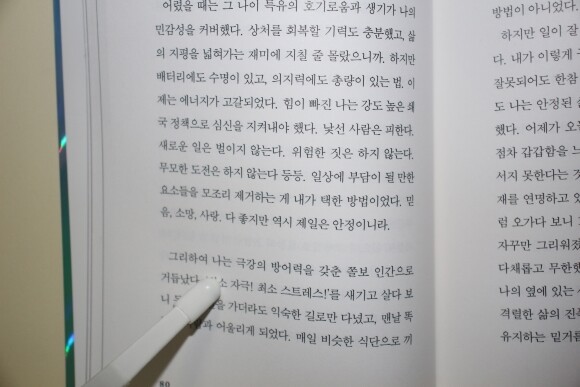 어렸을 때는 그 나이 특유의 호기로움과 생기가 나의
민감성을 커버했다. 상처를 회복할 기력도 충분했고, 삶
의 지평을 넓혀가는 재미에 지칠 줄 몰랐으니까. 하지만
배터리에도 수명이 있고, 의지력에도 총량이 있는 법. 이
제는 에너지가 고갈되었다. 힘이 빠진 나는 강도 높은 쇄
국 정책으로 심신을 지켜내야 했다. 낯선 사람은 피한다.
새로운 일은 벌이지 않는다. 위험한 짓은 하지 않는다.
무모한 도전은 하지 않는다 등등. 일상에 부담이 될 만한
요소들을 모조리 제거하는 게 내가 택한 방법이었다. 믿
음, 소망, 사랑. 다 좋지만 역시 제일은 안정이니라.
그리하여 나는 극강의 방어력을 갖춘 쫄보 인간으로
거듭났다. 자극! 최소 스트레스!'를 새기고 살다 보
니 가더라도 익숙한 길로만 다녔고, 맨날 똑
어울리게 되었다. 매일 비슷한 식단으로 끼
80
방법이 아니었다.
하지만 일이 잘
다. 내가 이렇게
잘못되어도 한참
도 나는 안정된
했다. 어제가 오
점차 갑갑함을
서지 못한다는 것
재를 연명하고 있
럼 오가다 보니
자꾸만 그리워졌
다채롭고 무한했
나의 옆에 있는
격렬한 삶의 진폭
유지하는 밑거름